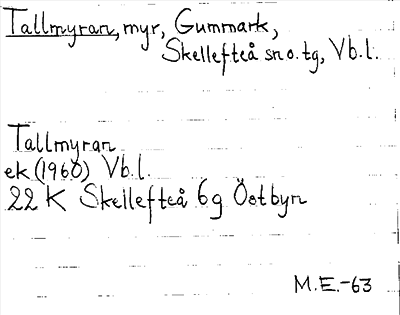 Tallmyran, myr, Gummark,
Skellefteå sn o. tg, Vb.l.
Tallmyran
ek (1960) Vb.l.
22 K Skellefteå 6g Östbyn
M.E.-63